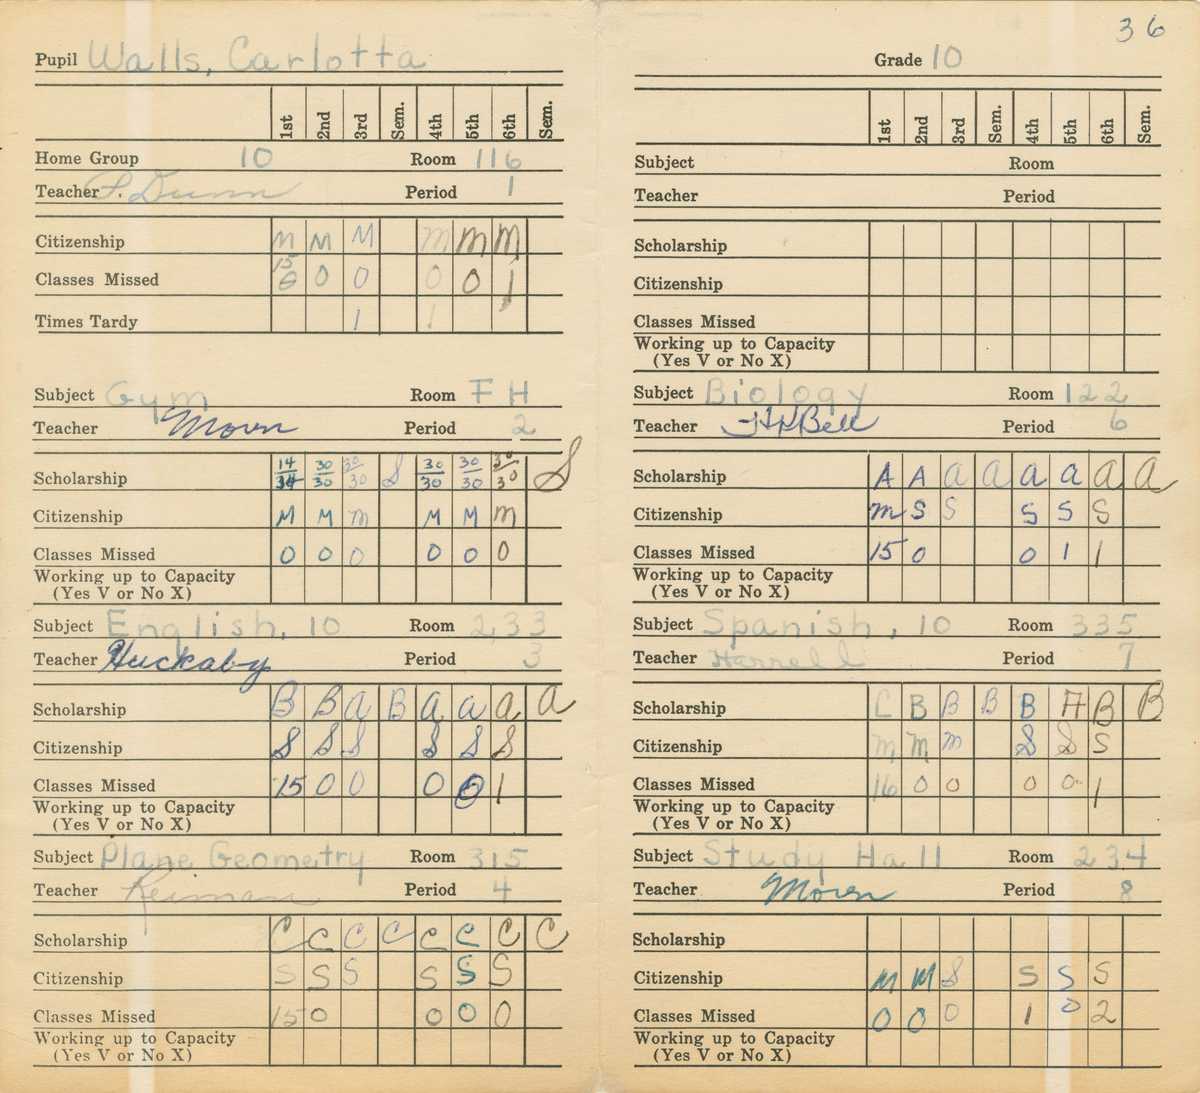 36
Pupil Walls, Carlotta
1st 2nd 3rd Sem. 4th 5th 6th Sem.
Home Group 10 Room 116
Teacher P. Dunn Period 1
Citizenship M M M M M M
Classes Missed 15 0 0 0 0 0 1
Times Tardy 1 1
Subject Gym Room F H
Teacher Period 2
Scholarship 14/34 30/30 30/30 S 30/30 30/30 30/30 S
Citizenship M M M M M M
Classes Missed 0 0 0 0 0 0
Working up to Capacity
(Yes V or No X)
Subject English, 10 Room 2,33
Teacher Huckaby Period 3
Scholarship B B A B a a a a
Citizenship S S S S S S
Classes Missed 15 0 0 0 0 1
Working up to Capacity
(Yes V or No X)
Subject Plane Geometry Room 315
Teacher Reiman Period 4
Scholarship C C C C C C C C
Citizenship S S S S S S
Classes Missed 15 0 0 0 0
Working up to Capacity
(Yes V or No X)
Grade 10
1st 2nd 3rd Sem. 4th 5th 6th Sem.
Subject Room
Teacher Period
Scholarship
Citizenship
Classes Missed
Working up to Capacity
(Yes V or No X)
Subject Biology Room 122
Teacher Bell Period 6
Scholarship A A a a a a a a
Citizenship m S S S S S
Classes Missed 15 0 0 1 1
Working up to Capacity
(Yes V or No X)
Subject Spanish, 10 Room 335
Teacher Harrell Period 7
Scholarship C B B B B A B B
Citizenship M M M S S S
Classes Missed 16 0 0 0 0 1
Working up to Capacity
(Yes V or No X)
Subject Study Hall Room 234
Teacher Period 8
Scholarship
Citizenship M M S S S S
Classes Missed 0 0 0 1 0 2
Working up to Capacity
(Yes V or No X)